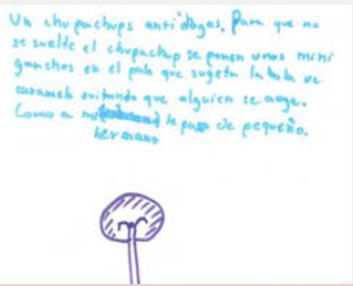 Un chupachups antiahogos. Para que no
se suelte el chupachup se ponen unos mini
ganchos en el palo que sujeta la bola de
caramelo evitando que alguien se aoge.
Como a mi le paso de pequeño.
hermano